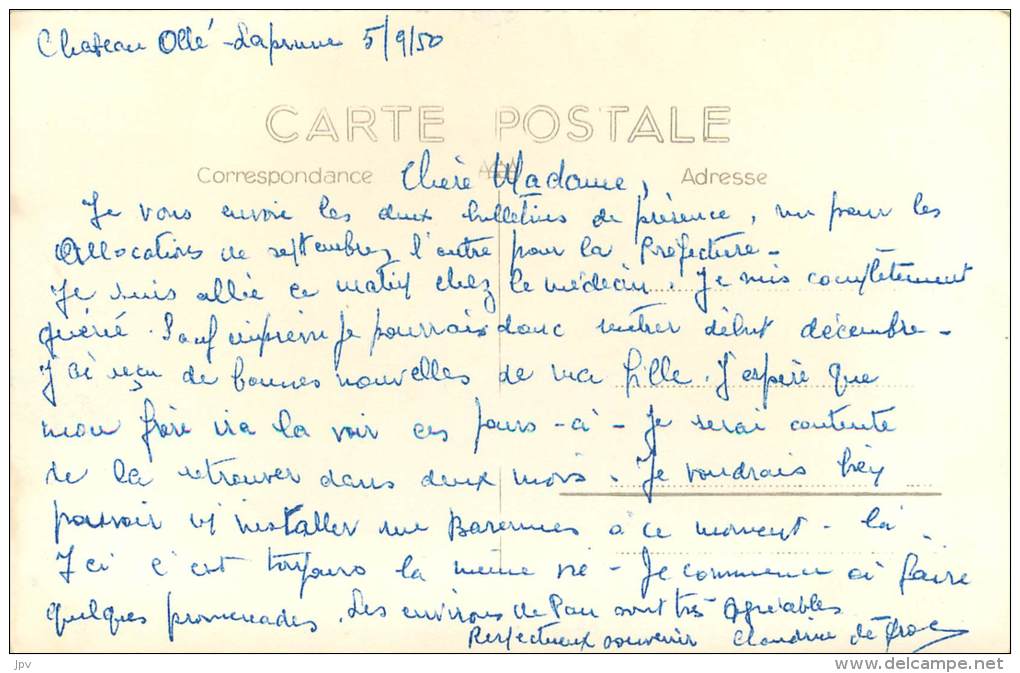 Chateau Ollé-Laprune 5/9/50
CARTE POSTALE
Correspondance
Adresse
Chère Madame,
Je vous envoie les deux bulletins de présence, un pour les
Allocations de septembre, l'autre pour la Préfecture -
Je suis allée ce matin chez le médecin. Je suis complètement
guérie. Sauf imprévu je pourrais donc rentrer début décembre -
J'ai reçu de bonnes nouvelles de ma fille. J'espère que
mon frère ira la voir ces jours-ci - Je serai contente
de la retrouver dans deux mois. Je voudrais bien
pouvoir m'installer à ce moment - là
Ici c'est toujours la même vie - Je commence à faire
quelques promenades. Les environs de Pau sont très agréables
Respectueux souvenir Claudine de
jpv
www.delcampe.net